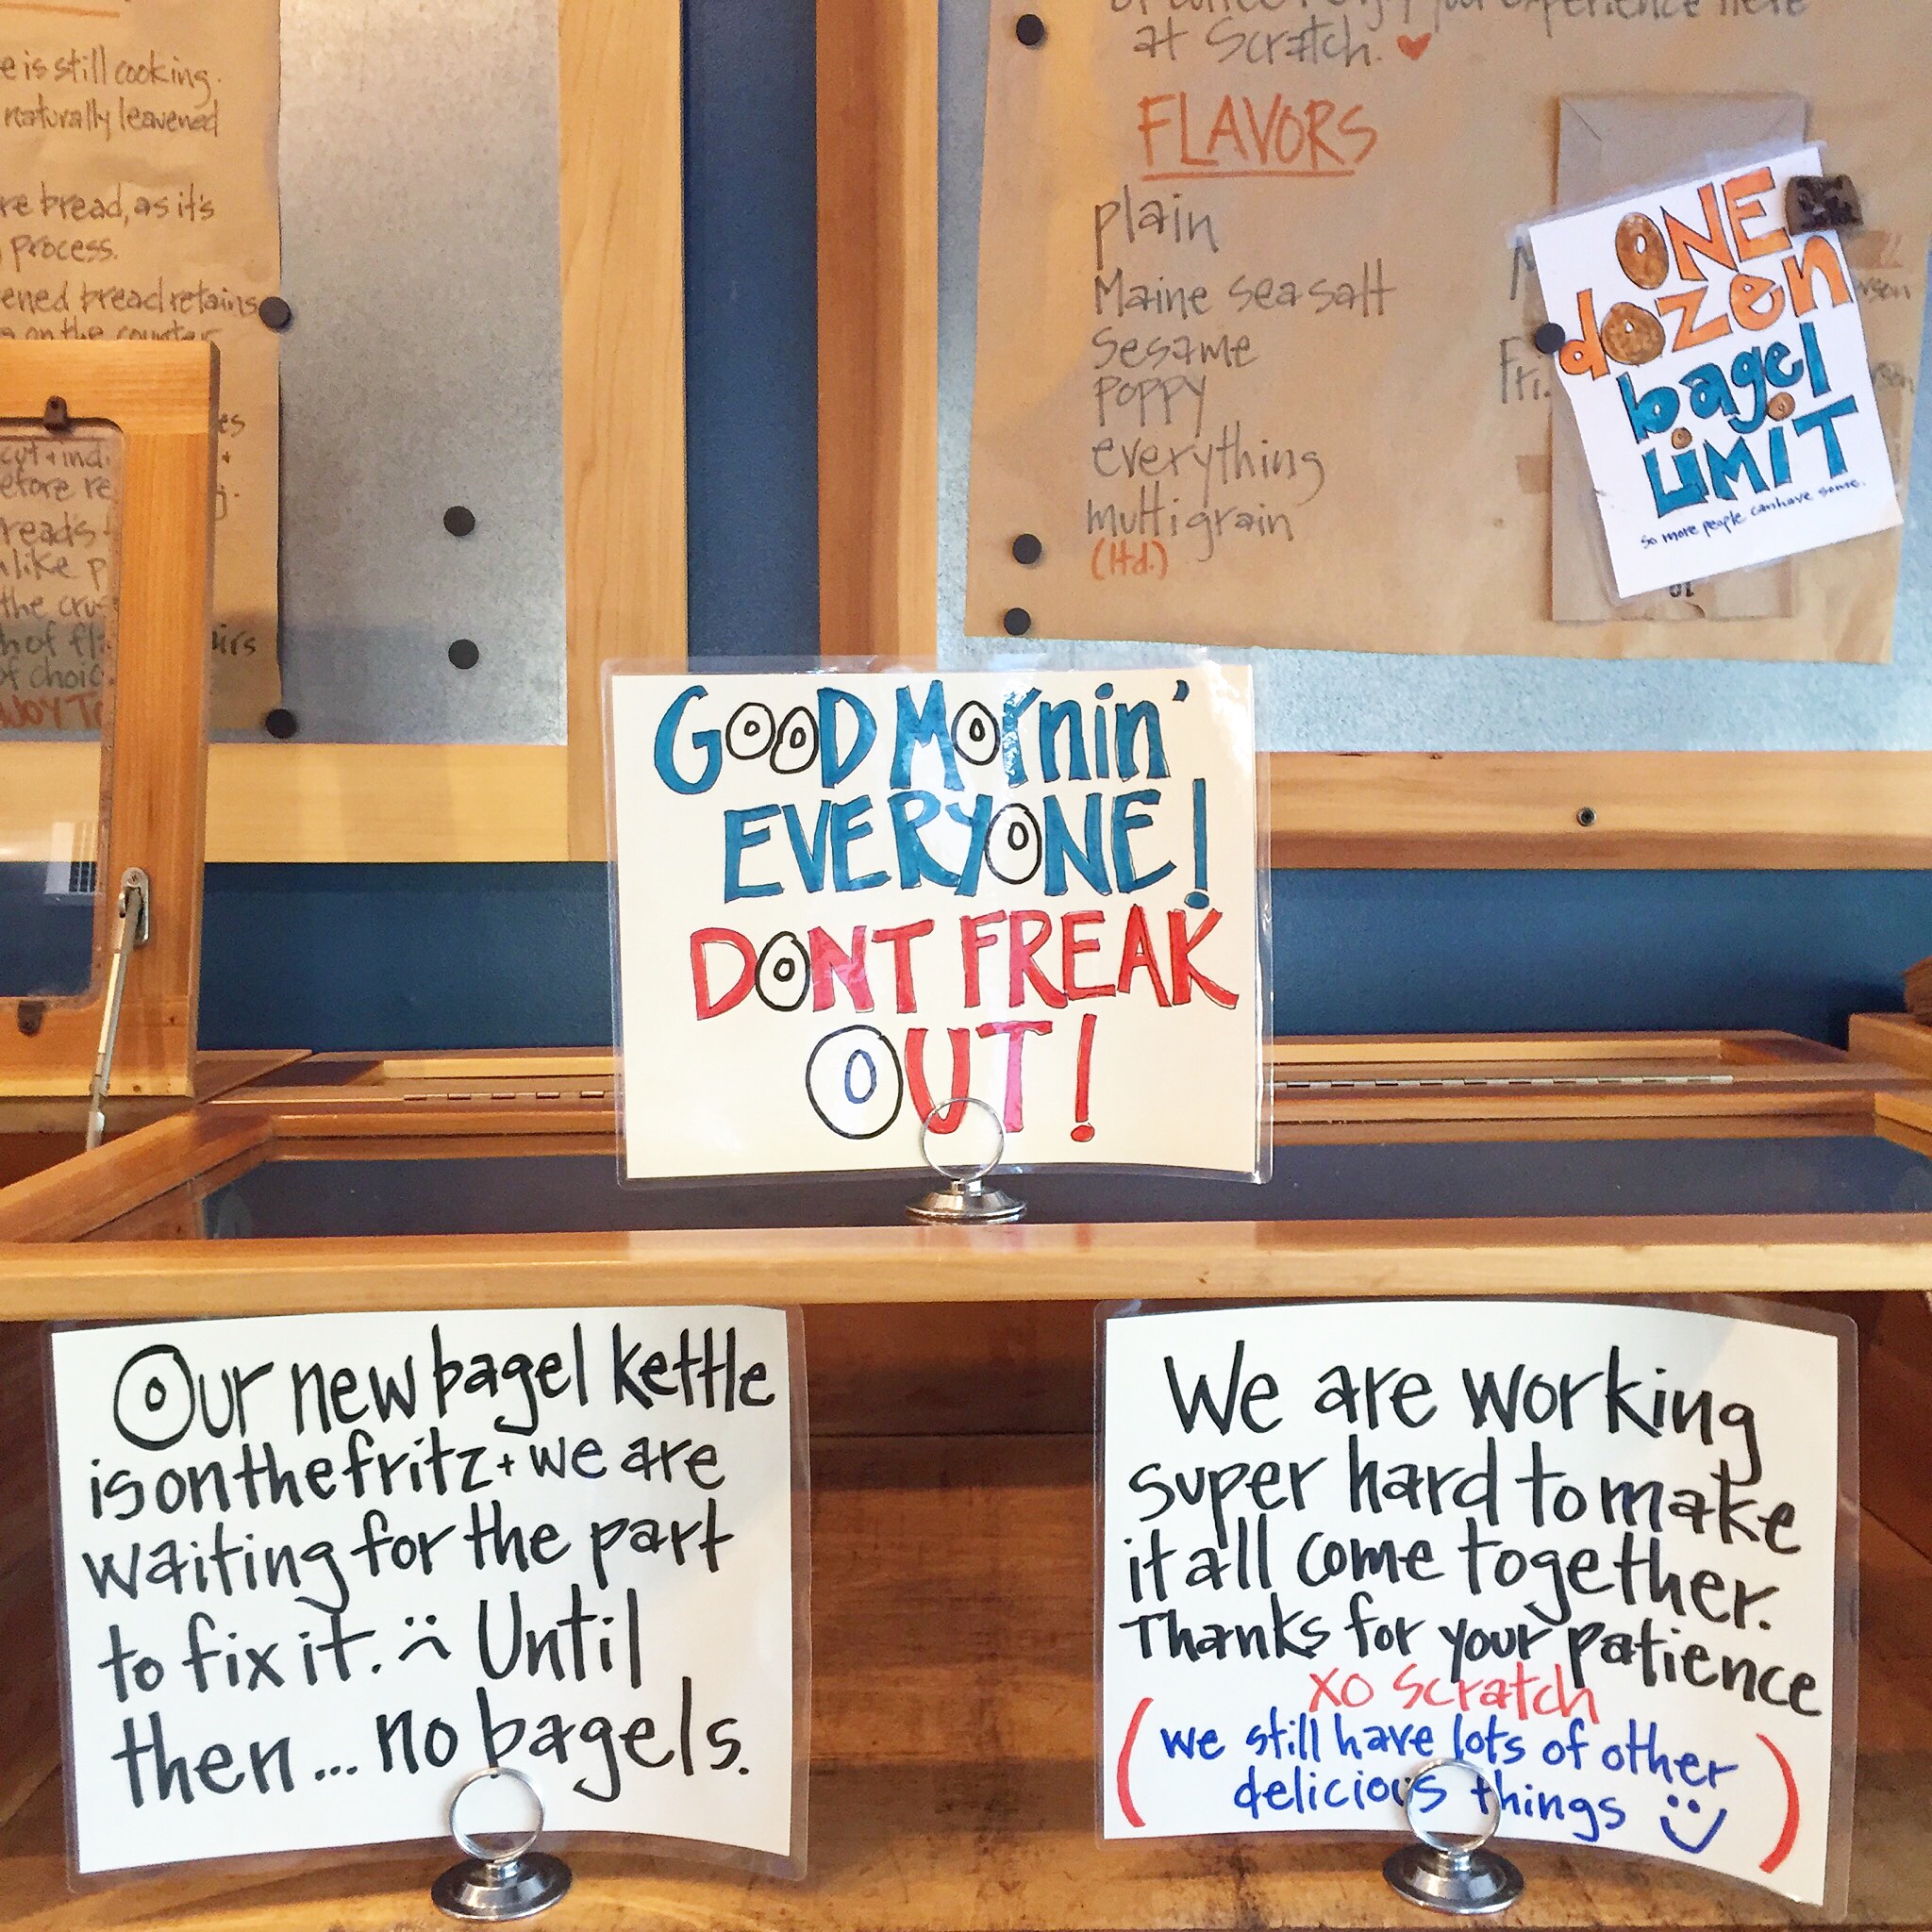 e is still cooking.
naturally leavened
re bread, as it's
process.
ened bread retains
on the counter
es
cut + indi
efore re
read's
like p
the cru
h of fl
irs
of choic
JOY TO
at Scratch. ♥
FLAVORS
plain
Maine sea salt
Sesame
poppy
everything
multigrain
(Hd.)
Fri.
ONE
dozen
bagel
LiMiT
so more people can have some.
GOOD MOrnin'
EVERYONE!
DONT FREAK
OUT!
Our new bagel kettle
is on the fritz + we are
waiting for the part
to fix it. :( Until
then... no bagels.
We are working
super hard to make
it all come together.
Thanks for your patience
xo Scratch
(we still have lots of other
delicious things :))